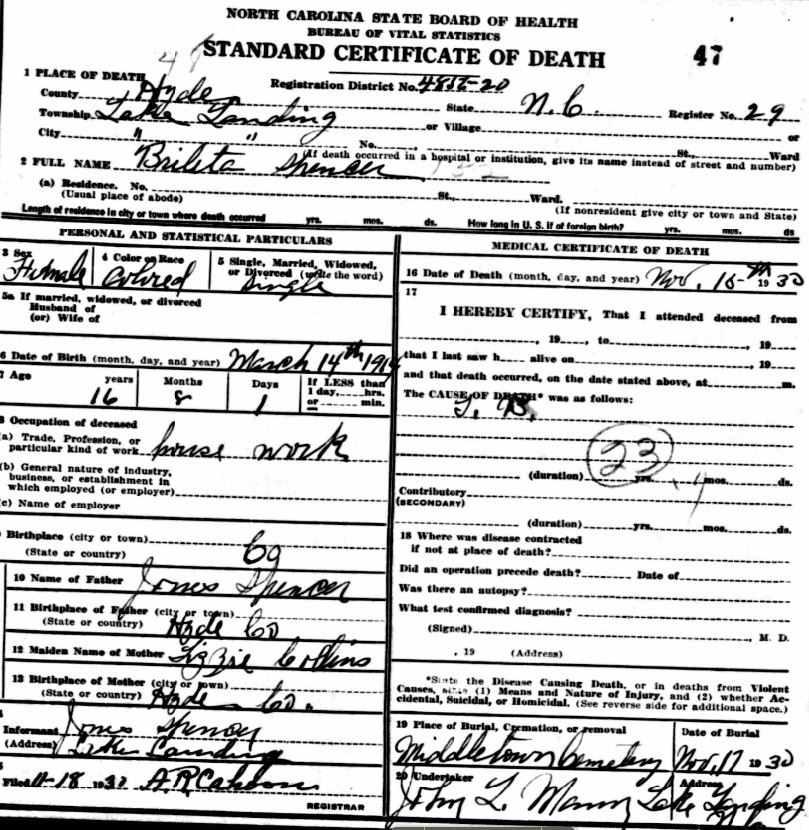 NORTH CAROLINA STATE BOARD OF HEALTH
BUREAU OF VITAL STATISTICS
STANDARD CERTIFICATE OF DEATH 47
1 PLACE OF DEATH Registration District No.
County Hyde State N.C. Register No. 29
Township Lake Landing or Village or
City " " No. St., Ward
(If death occurred in a hospital or institution, give its name instead of street and number)
2 FULL NAME Spencer
(a) Residence. No. St., Ward.
(Usual place of abode) (If nonresident give city or town and State)
Length of residence in city or town where death occurred yrs. mos. ds. How long in U. S. if of foreign birth? yrs. mos. ds
PERSONAL AND STATISTICAL PARTICULARS
3 Sex 4 Color or Race 5 Single, Married, Widowed,
or Divorced (write the word)
Female Colored Single
5a If married, widowed, or divorced
Husband of
(or) Wife of
6 Date of Birth (month, day, and year) March 14th 1914
7 Age years Months Days If LESS than
1 day, hrs.
or min.
16 8 1
8 Occupation of deceased
(a) Trade, Profession, or
particular kind of work house work
(b) General nature of industry,
business, or establishment in
which employed (or employer)
(c) Name of employer
Birthplace (city or town)
(State or country) Co
10 Name of Father Jones Spencer
11 Birthplace of Father (city or town)
(State or country) Hyde Co
12 Maiden Name of Mother Lizzie Collins
13 Birthplace of Mother (city or town)
(State or country) Hyde Co.
Informant Jones Spencer
(Address) Lake Landing
Filed 11-18 1930
REGISTRAR
MEDICAL CERTIFICATE OF DEATH
16 Date of Death (month, day, and year) Nov. 15th 1930
17
I HEREBY CERTIFY, That I attended deceased from
, 19 , to , 19
that I last saw h alive on , 19
and that death occurred, on the date stated above, at m.
The CAUSE OF DEATH* was as follows:
T. B.
23
(duration) yrs. mos. ds.
Contributory
(SECONDARY)
(duration) yrs. mos. ds.
18 Where was disease contracted
if not at place of death?
Did an operation precede death? Date of
Was there an autopsy?
What test confirmed diagnosis?
(Signed) , M. D.
, 19 (Address)
*State the Disease Causing Death, or in deaths from Violent
Causes, state (1) Means and Nature of Injury, and (2) whether Ac-
cidental, Suicidal, or Homicidal. (See reverse side for additional space.)
19 Place of Burial, Cremation, or removal Date of Burial
Middletown Cemetery Nov. 17 1930
20 Undertaker Address
John L. Mann Lake Landing